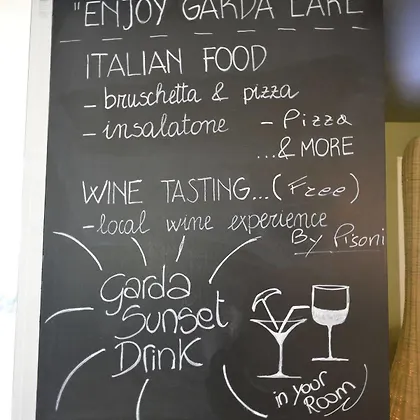 "ENJOY GARDA LAKE
ITALIAN FOOD
- bruschetta & pizza
- insalatone - Pizza
...& MORE
WINE TASTING...(Free)
- local wine experience
By Pisoni
Garda
Sunset
Drink
in your
Room